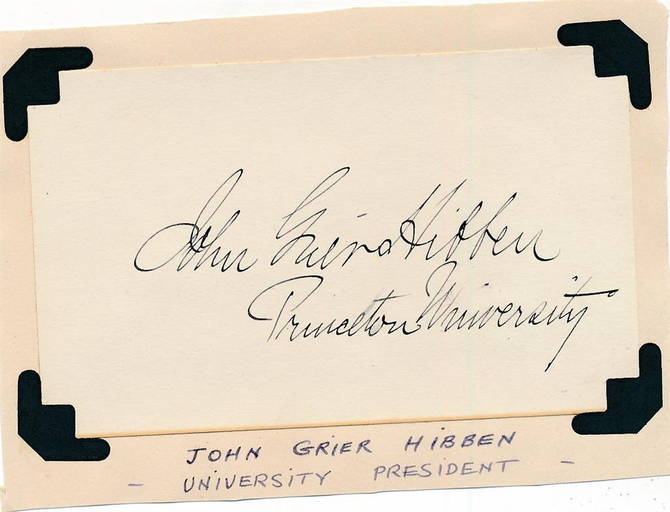 John Grier Hibben
Princeton University
JOHN GRIER HIBBEN
- UNIVERSITY PRESIDENT -